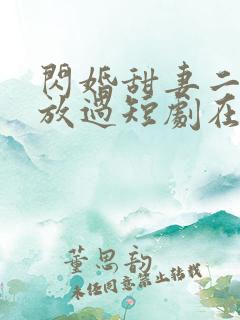 閃婚甜妻二
放過短劇在
董思韵
未经同意禁止转载